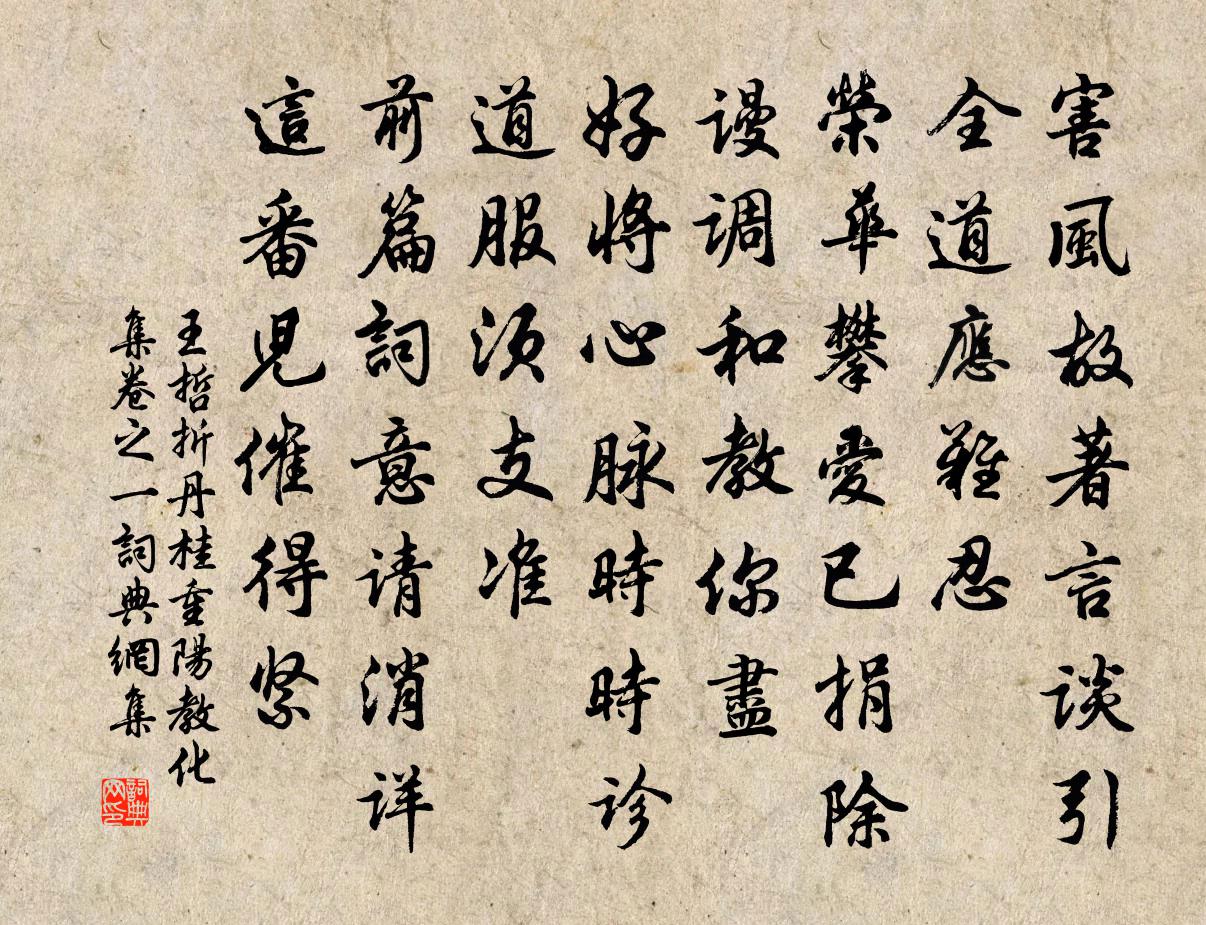 害風故著言谈引
全道應難忍
榮華攀愛已捐除
謾调和教你盡
好將心脉時時诊
道服须支准
前篇詞意请消详
這番児催得紧
王哲折丹桂重陽教化
集卷之一詞典網集
詞典网印